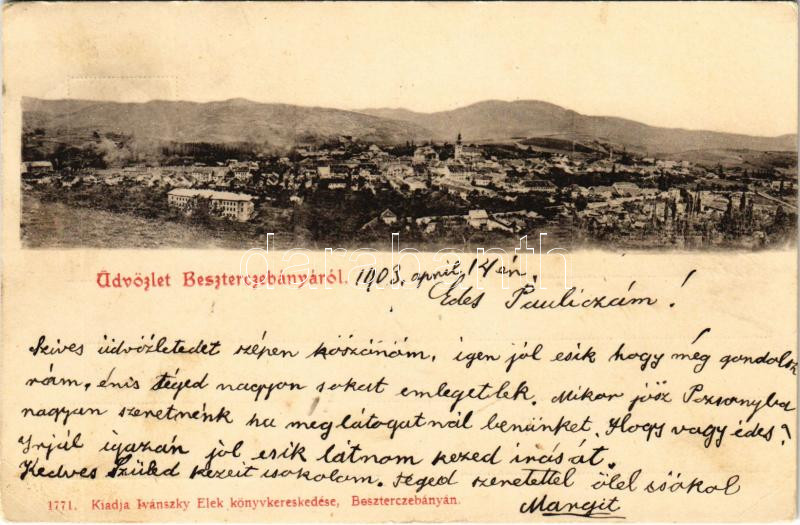 Üdvözlet Beszterczebányáról. 1903. april. 14 én.
Édes Pauliczám!
Szives üdvözletedet szépen köszönöm, igen jól esik hogy még gondolsz
rám, énis téged nagyon sokat emlegetlek. Mikor jösz Pozsonyba
nagyon szeretnénk ha meglátogatnál benünket. Hogy vagy édes?
Irjál igazán jól esik látnom kezed irását.
Kedves Szüleid kezeit csokolom. téged szeretettel ölel csókol
Margit
1771. Kiadja Ivánszky Elek könyvkereskedése, Beszterczebányán.
darabanth